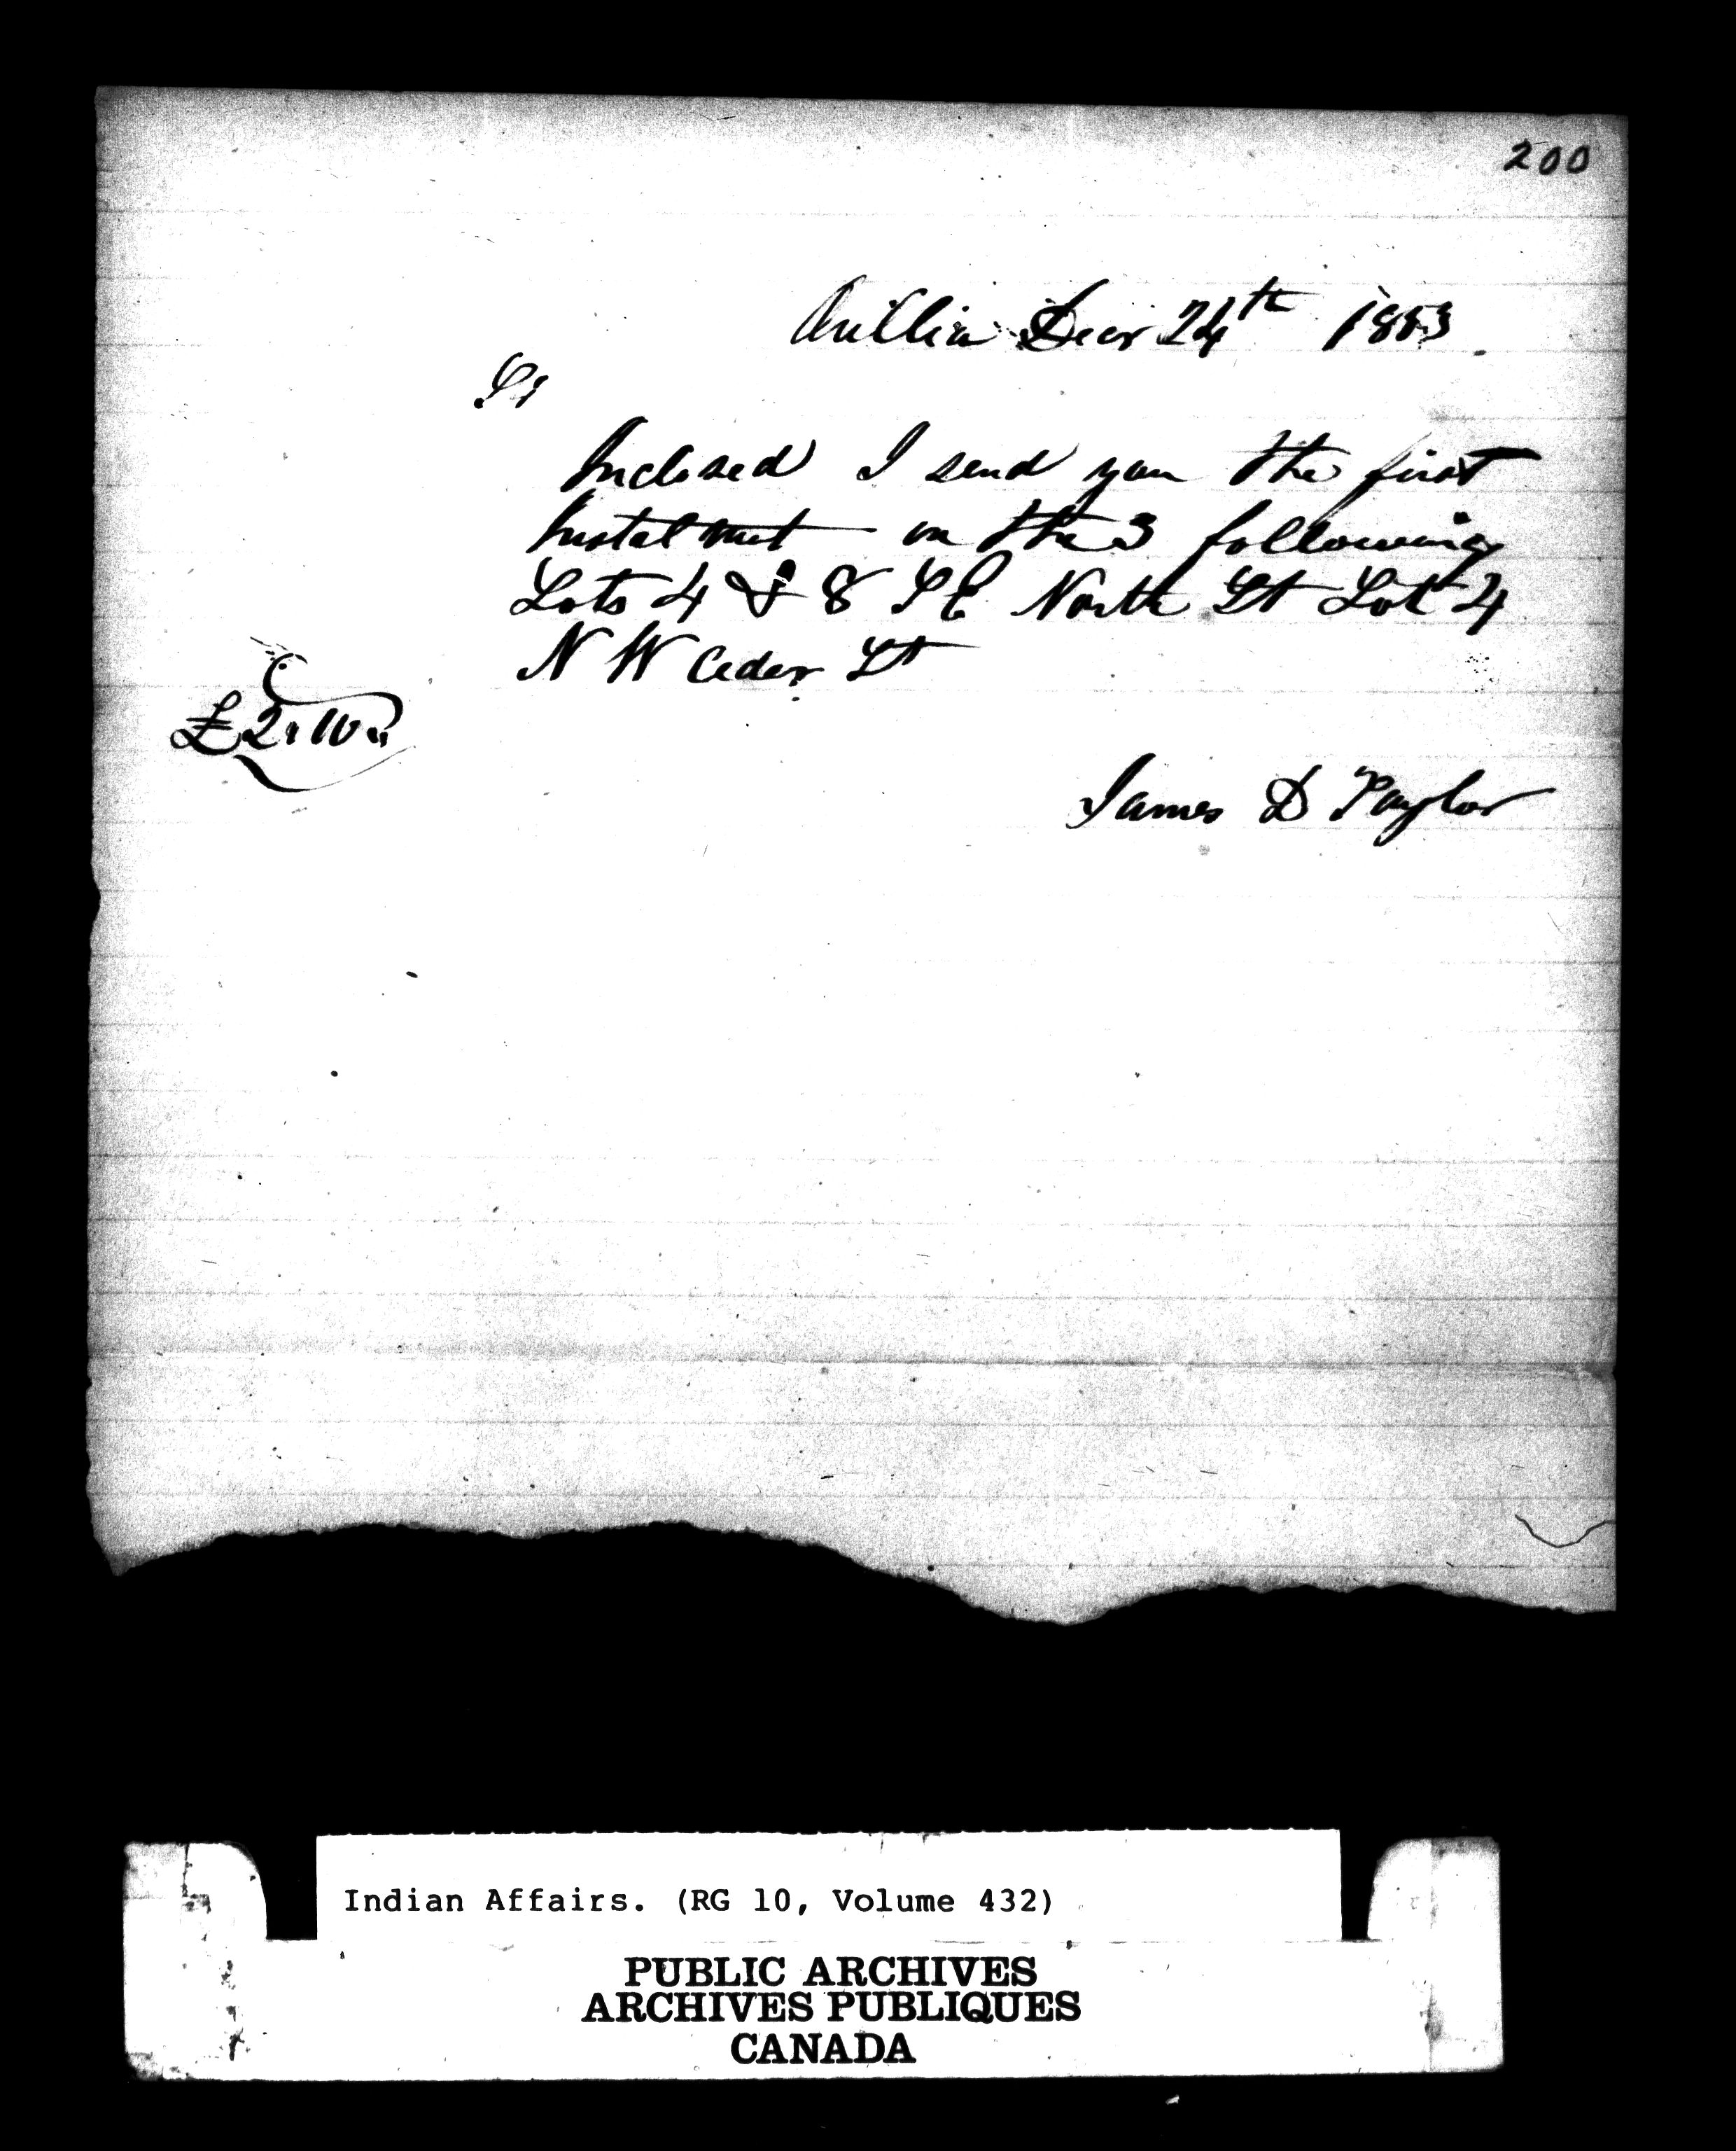 200
Orillia Decr 24th 1853
Sr
Inclosed I send you the first
Instalment on the 3 following
Lots 4 & 8 S E North St Lot 4
N W Ceder St
£2"10"
James D Taylor
Indian Affairs. (RG 10, Volume 432)
PUBLIC ARCHIVES
ARCHIVES PUBLIQUES
CANADA